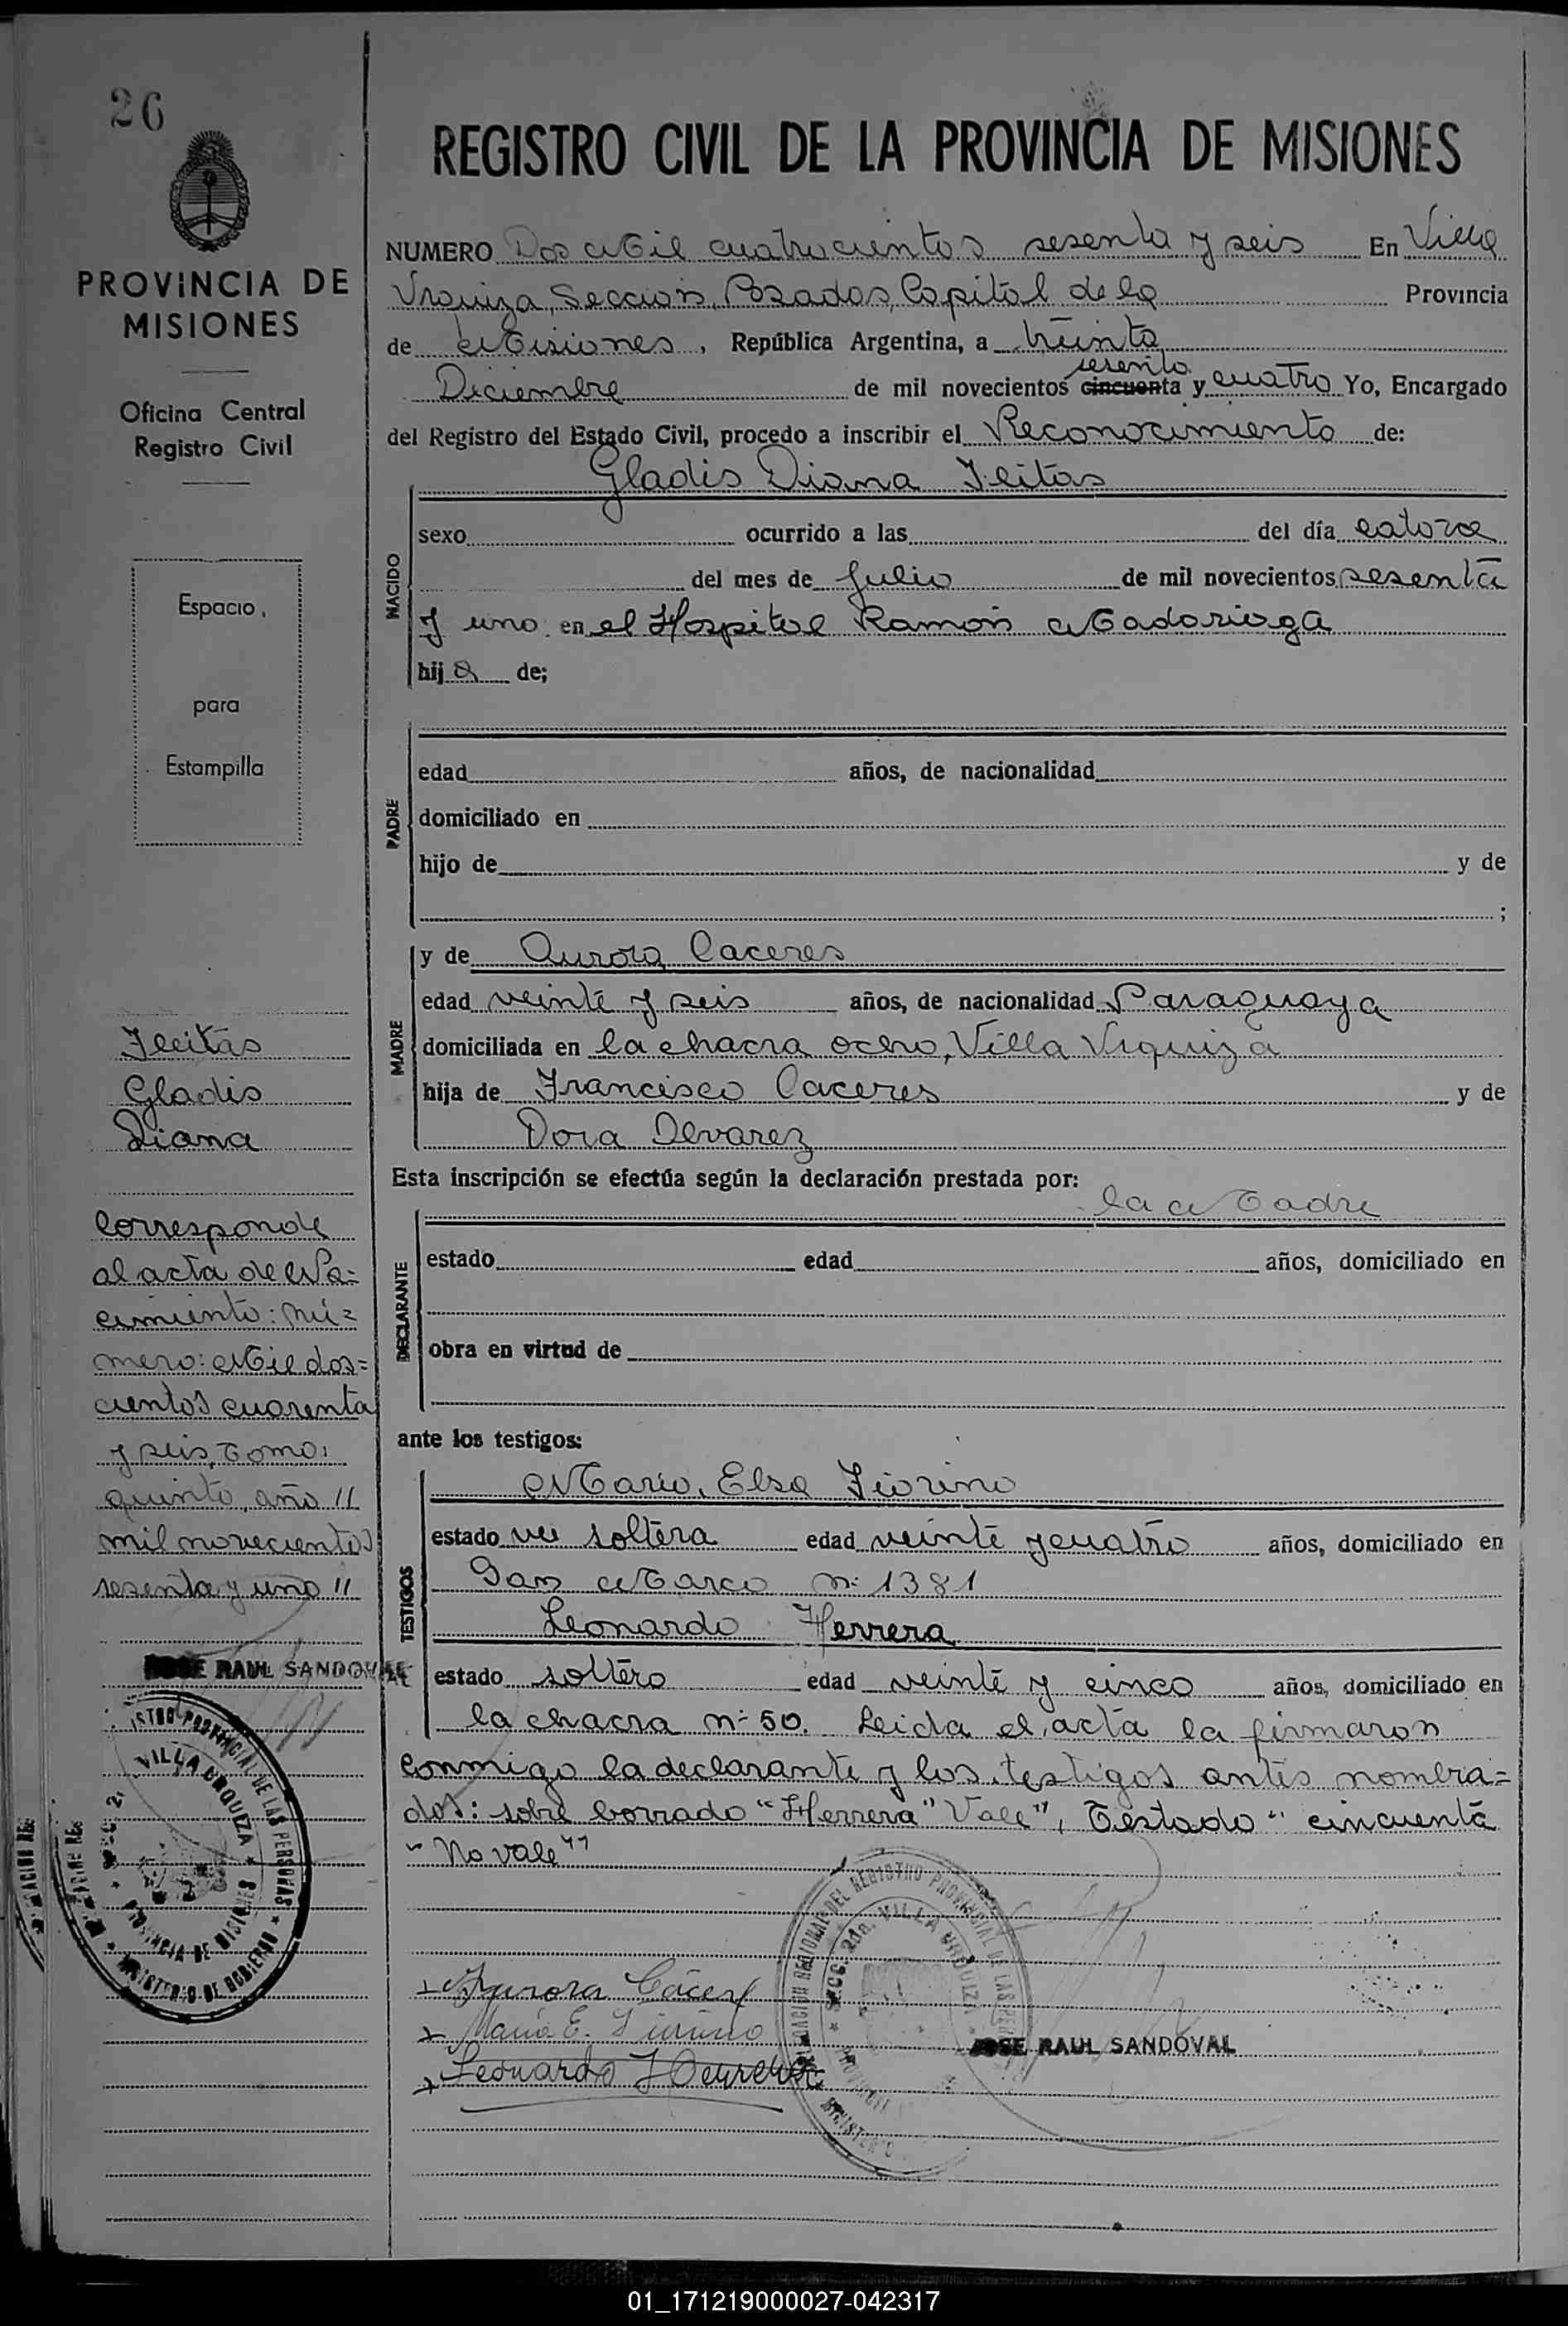 26
PROVINCIA DE
MISIONES
Oficina Central
Registro Civil
Espacio
para
Estampilla
Fleitas
Gladis
Diana
Corresponde
al acta de Na=
cimiento: nú=
mero: Mil dos=
cientos cuarenta
y seis, Tomo:
quinto, año "
mil novecientos
sesenta y uno "
JOSE RAUL SANDOVAL
VILLA URQUIZA
PROVINCIA DE MISIONES
MINISTERIO DE GOBIERNO
REGISTRO CIVIL DE LA PROVINCIA DE MISIONES
NUMERO Dos Mil cuatrocientos sesenta y seis En Villa
Urquiza, Seccion, Posadas, Capital de la Provincia
de Misiones, República Argentina, a treinta
sesenta
Diciembre de mil novecientos cincuenta y cuatro Yo, Encargado
del Registro del Estado Civil, procedo a inscribir el Reconocimiento de:
Gladis Diana Fleitas
NACIDO
sexo ocurrido a las del día catorce
del mes de Julio de mil novecientos sesenta
y uno en el Hospital Ramón Madariaga
hija de;
PADRE
edad años, de nacionalidad
domiciliado en
hijo de y de
;
MADRE
y de Aurora Caceres
edad veinte y seis años, de nacionalidad Paraguaya
domiciliada en la chacra ocho, Villa Urquiza
hija de Francisco Caceres y de
Dora Alvarez
Esta inscripción se efectúa según la declaración prestada por:
la Madre
DECLARANTE
estado edad años, domiciliado en
obra en virtud de
ante los testigos:
TESTIGOS
María Elsa Fiorino
estado soltera edad veinte y cuatro años, domiciliado en
San Marco n: 1381
Leonardo Herrera
estado soltero edad veinte y cinco años, domiciliado en
la chacra n: 50. Leida el acta la firmaron
conmigo la declarante y los testigos antes nombra=
dos: sobre borrado "Herrera" Vale", Testado " cincuenta
" No vale""
Aurora Cácere
María E. Fiorino
Leonardo Herrera
VILLA URQUIZA
JOSE RAUL SANDOVAL
01_171219000027-042317